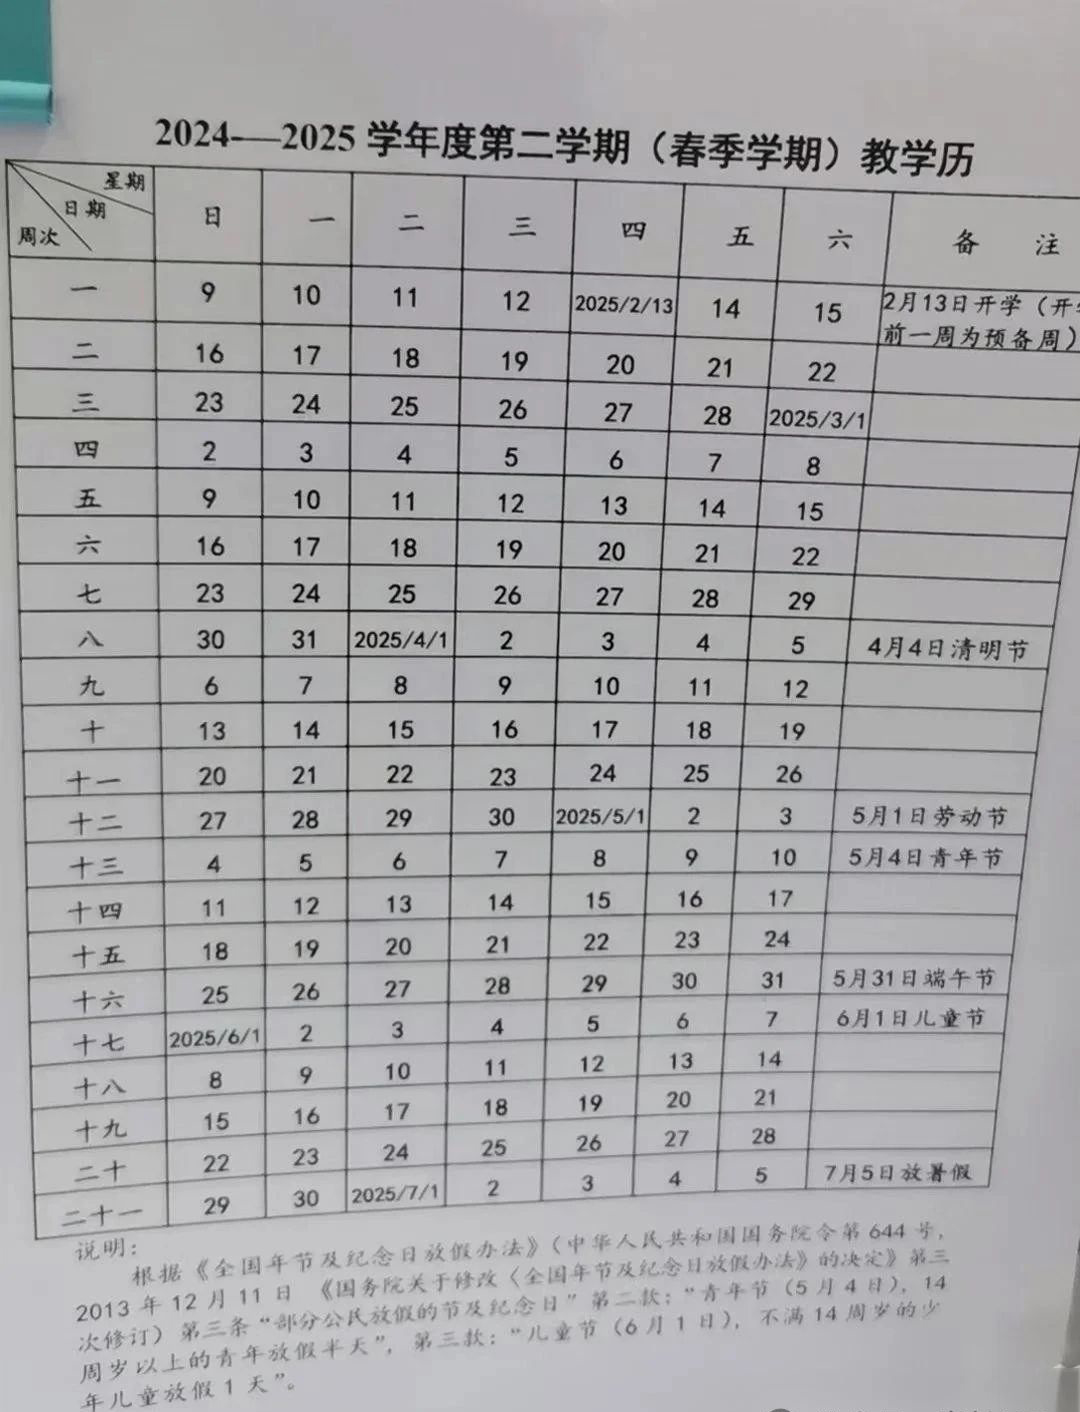 2024—2025 学年度第二学期（春季学期）教学历
星期
日期
周次
日 一 二 三 四 五 六 备 注
一 9 10 11 12 2025/2/13 14 15 2月13日开学（开
前一周为预备周）
二 16 17 18 19 20 21 22
三 23 24 25 26 27 28 2025/3/1
四 2 3 4 5 6 7 8
五 9 10 11 12 13 14 15
六 16 17 18 19 20 21 22
七 23 24 25 26 27 28 29
八 30 31 2025/4/1 2 3 4 5 4月4日清明节
九 6 7 8 9 10 11 12
十 13 14 15 16 17 18 19
十一 20 21 22 23 24 25 26
十二 27 28 29 30 2025/5/1 2 3 5月1日劳动节
十三 4 5 6 7 8 9 10 5月4日青年节
十四 11 12 13 14 15 16 17
十五 18 19 20 21 22 23 24
十六 25 26 27 28 29 30 31 5月31日端午节
十七 2025/6/1 2 3 4 5 6 7 6月1日儿童节
十八 8 9 10 11 12 13 14
十九 15 16 17 18 19 20 21
二十 22 23 24 25 26 27 28
二十一 29 30 2025/7/1 2 3 4 5 7月5日放暑假
说明：
根据《全国年节及纪念日放假办法》（中华人民共和国国务院令第 644 号，
2013 年 12 月 11 日 《国务院关于修改〈全国年节及纪念日放假办法》的决定》第三
次修订）第三条“部分公民放假的节及纪念日”第二款：“青年节（5 月 4 日），14
周岁以上的青年放假半天”，第三款：“儿童节（6 月 1 日），不满 14 周岁的少
年儿童放假 1 天”。